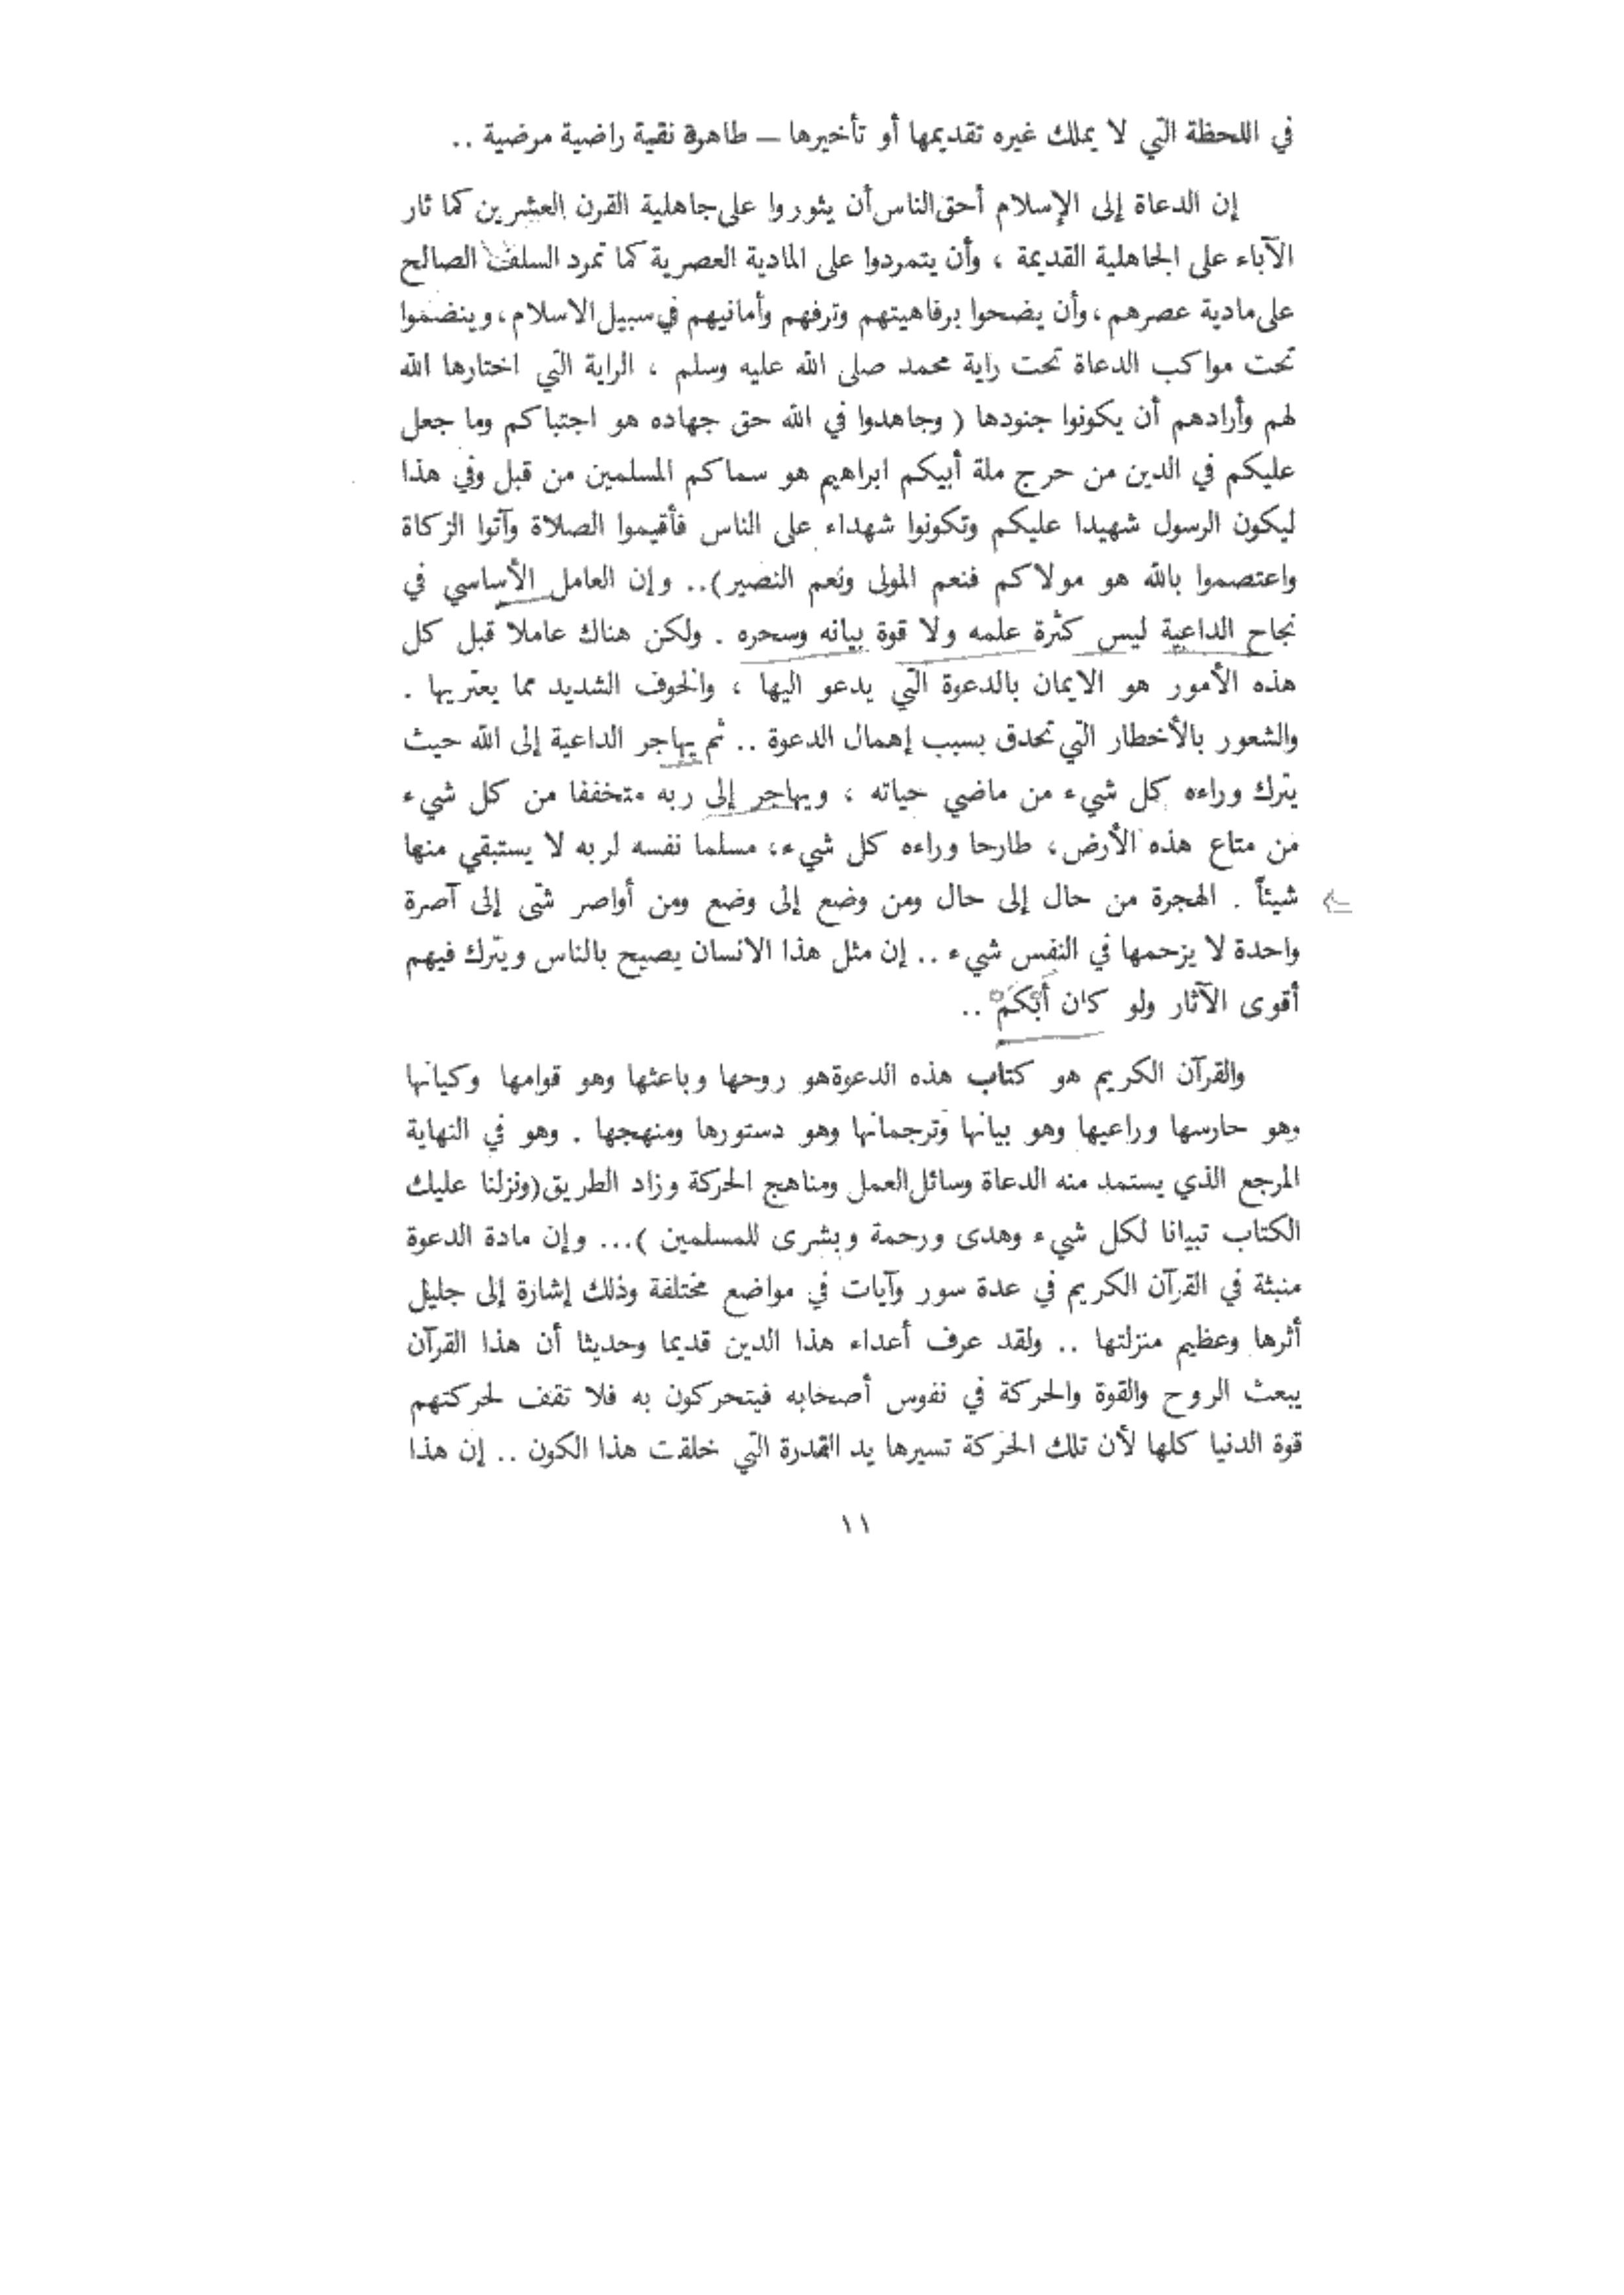 في اللحظة التي لا يملك غيره تقديمها أو تأخيرها — طاهرة نقية راضية مرضية ..
إن الدعاة إلى الإسلام أحق الناس أن يثوروا على جاهلية القرن العشرين كما ثار
الآباء على الجاهلية القديمة ، وأن يتمردوا على المادية العصرية كما تمرد السلف الصالح
على مادية عصرهم ، وأن يضحوا برفاهيتهم وترفهم وأمانيهم في سبيل الاسلام ، وينضموا
تحت مواكب الدعاة تحت راية محمد صلى الله عليه وسلم ، الراية التي اختارها الله
لهم وأرادهم أن يكونوا جنودها ( وجاهدوا في الله حق جهاده هو اجتباكم وما جعل
عليكم في الدين من حرج ملة أبيكم ابراهيم هو سماكم المسلمين من قبل وفي هذا
ليكون الرسول شهيدا عليكم وتكونوا شهداء على الناس فأقيموا الصلاة وآتوا الزكاة
واعتصموا بالله هو مولاكم فنعم المولى ونعم النصير).. وإن العامل الأساسي في
نجاح الداعية ليس كثرة علمه ولا قوة بيانه وسحره . ولكن هناك عاملا قبل كل
هذه الأمور هو الايمان بالدعوة التي يدعو اليها ، والخوف الشديد مما يعتريها .
والشعور بالأخطار التي تحدق بسبب إهمال الدعوة .. ثم يهاجر الداعية إلى الله حيث
يترك وراءه كل شيء من ماضي حياته ، ويهاجر إلى ربه متخففا من كل شيء
من متاع هذه الأرض، طارحا وراءه كل شيء، مسلما نفسه لربه لا يستبقي منها
شيئاً . الهجرة من حال إلى حال ومن وضع إلى وضع ومن أواصر شتى إلى آصرة
واحدة لا يزحمها في النفس شيء .. إن مثل هذا الانسان يصيح بالناس ويترك فيهم
أقوى الآثار ولو كان أبكم ..
والقرآن الكريم هو كتاب هذه الدعوة هو روحها وباعثها وهو قوامها وكيانها
وهو حارسها وراعيها وهو بيانها وترجمانها وهو دستورها ومنهجها . وهو في النهاية
المرجع الذي يستمد منه الدعاة وسائل العمل ومناهج الحركة وزاد الطريق (ونزلنا عليك
الكتاب تبيانا لكل شيء وهدى ورحمة وبشرى للمسلمين )... وإن مادة الدعوة
منبثة في القرآن الكريم في عدة سور وآيات في مواضع مختلفة وذلك إشارة إلى جليل
أثرها وعظيم منزلتها .. ولقد عرف أعداء هذا الدين قديما وحديثا أن هذا القرآن
يبعث الروح والقوة والحركة في نفوس أصحابه فيتحركون به فلا تقف لحركتهم
قوة الدنيا كلها لأن تلك الحركة تسيرها يد القدرة التي خلقت هذا الكون .. إن هذا
١١